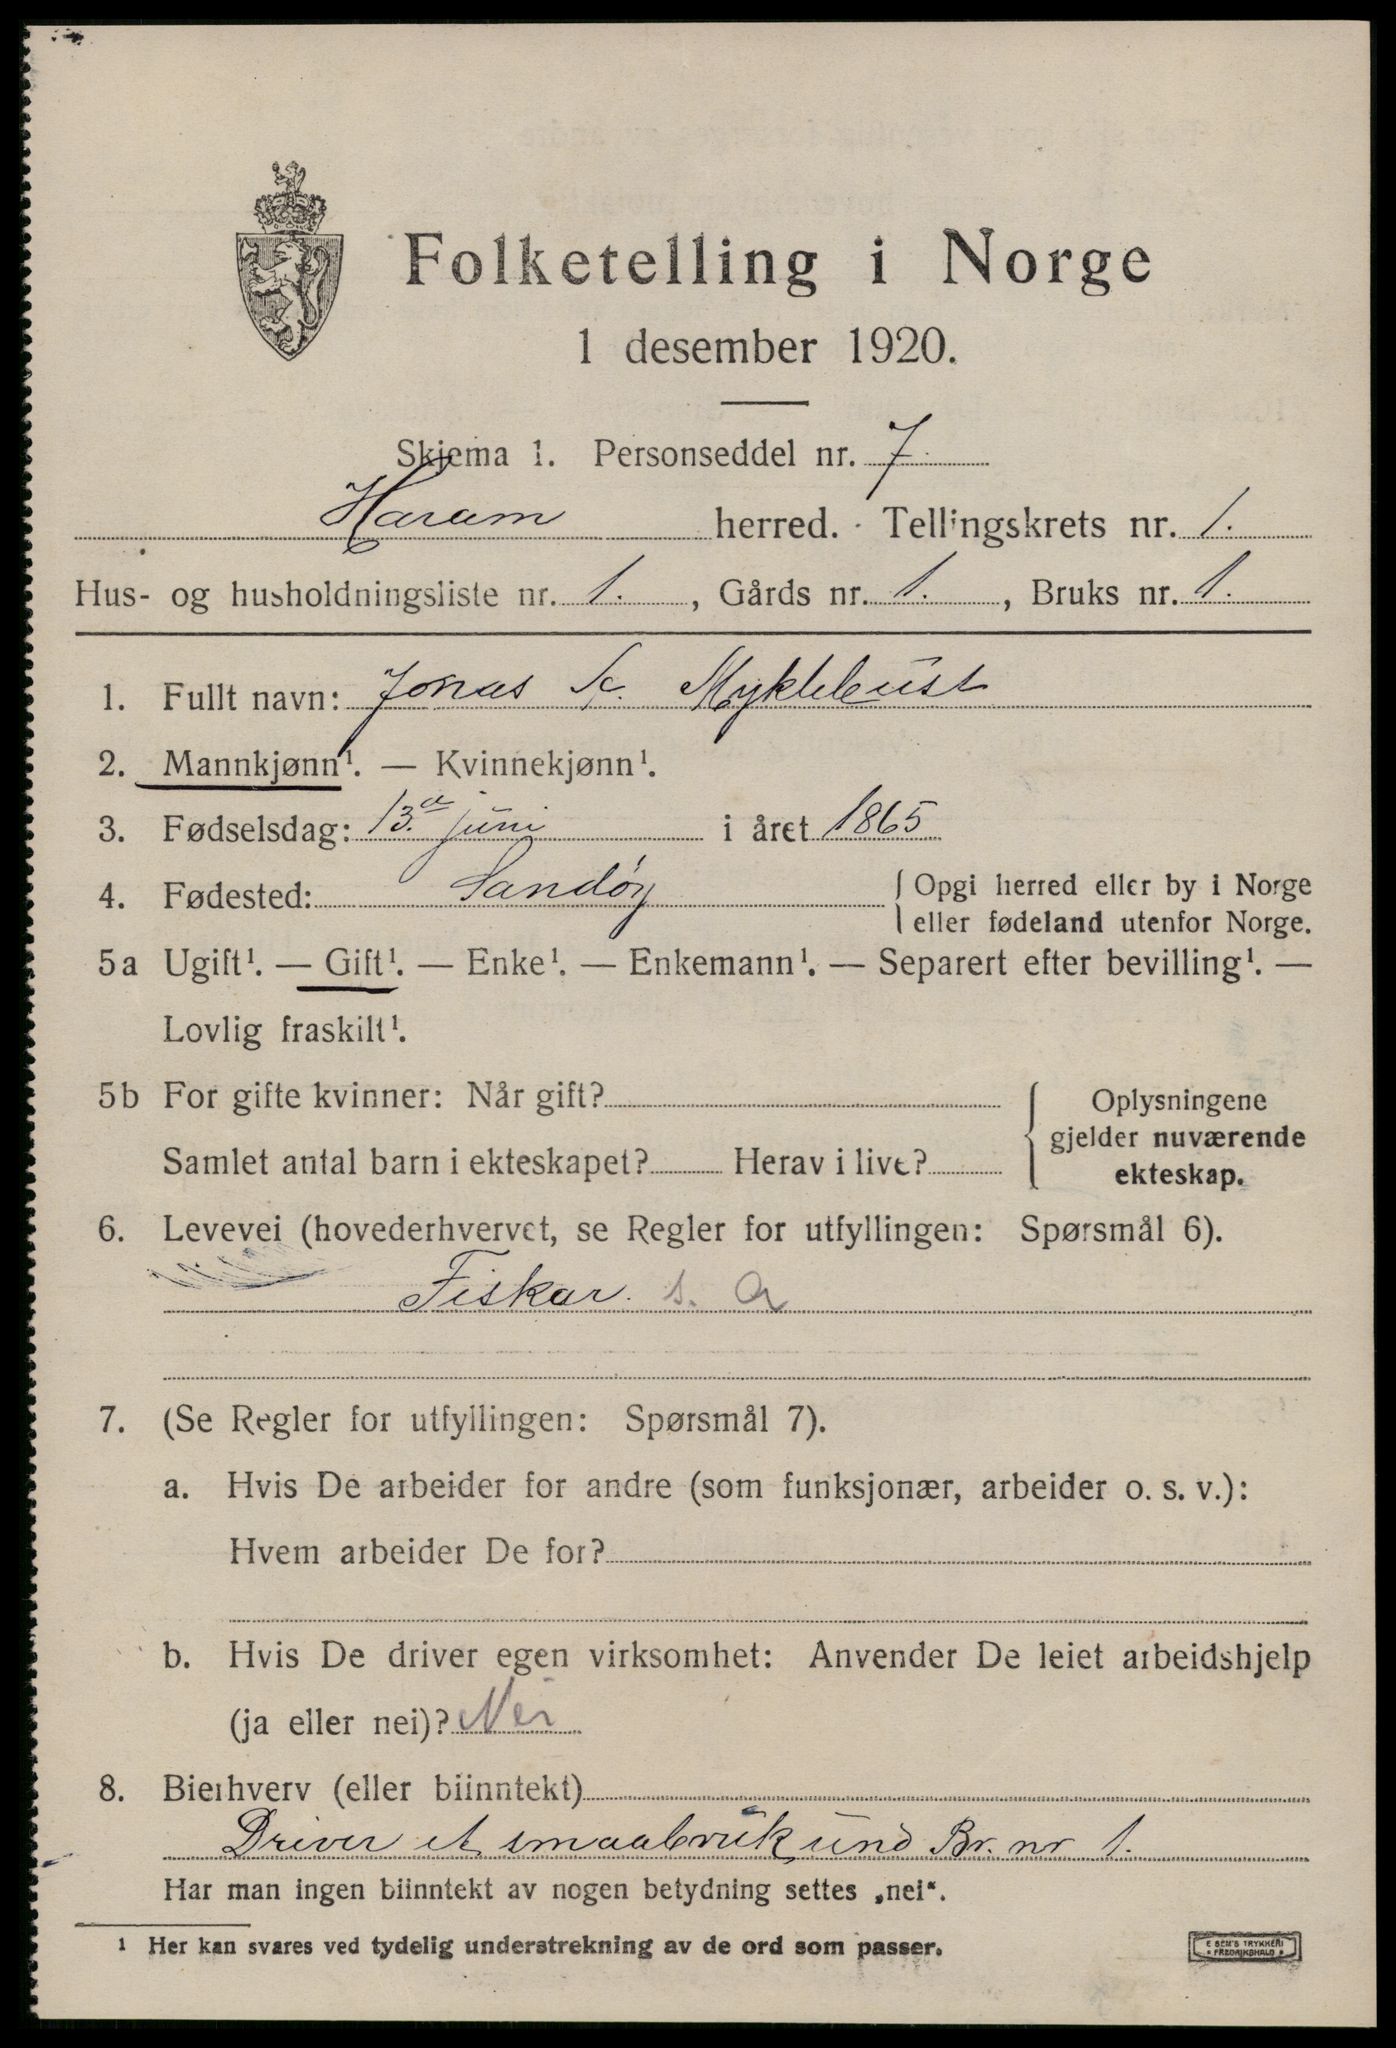 Folketelling i Norge
1 desember 1920.
Skjema 1. Personseddel nr. 7.
Haram herred. Tellingskrets nr. 1.
Hus- og husholdningsliste nr. 1., Gårds nr. 1., Bruks nr. 1.
1. Fullt navn: Jonas K. Myklebust
2. Mannkjønn¹. — Kvinnekjønn¹.
3. Fødselsdag: 13.de juni i året 1865
4. Fødested: Sandøy { Opgi herred eller by i Norge
eller fødeland utenfor Norge.
5a Ugift¹. — Gift¹. — Enke¹. — Enkemann¹. — Separert efter bevilling¹. —
Lovlig fraskilt¹.
5b For gifte kvinner: Når gift? { Oplysningene
gjelder nuværende
Samlet antal barn i ekteskapet? Herav i live?
ekteskap.
6. Levevei (hovederhvervet, se Regler for utfyllingen: Spørsmål 6).
Fiskar. s. a
7. (Se Regler for utfyllingen: Spørsmål 7).
a. Hvis De arbeider for andre (som funksjonær, arbeider o. s. v.):
Hvem arbeider De for?
b. Hvis De driver egen virksomhet: Anvender De leiet arbeidshjelp
(ja eller nei)? Nei
8. Bierhverv (eller biinntekt)
Driver et smaabruk und Br. nr 1.
Har man ingen biinntekt av nogen betydning settes „nei“.
¹ Her kan svares ved tydelig understrekning av de ord som passer.
E SEM'S TRYKKERI
FREDRIKSHALD